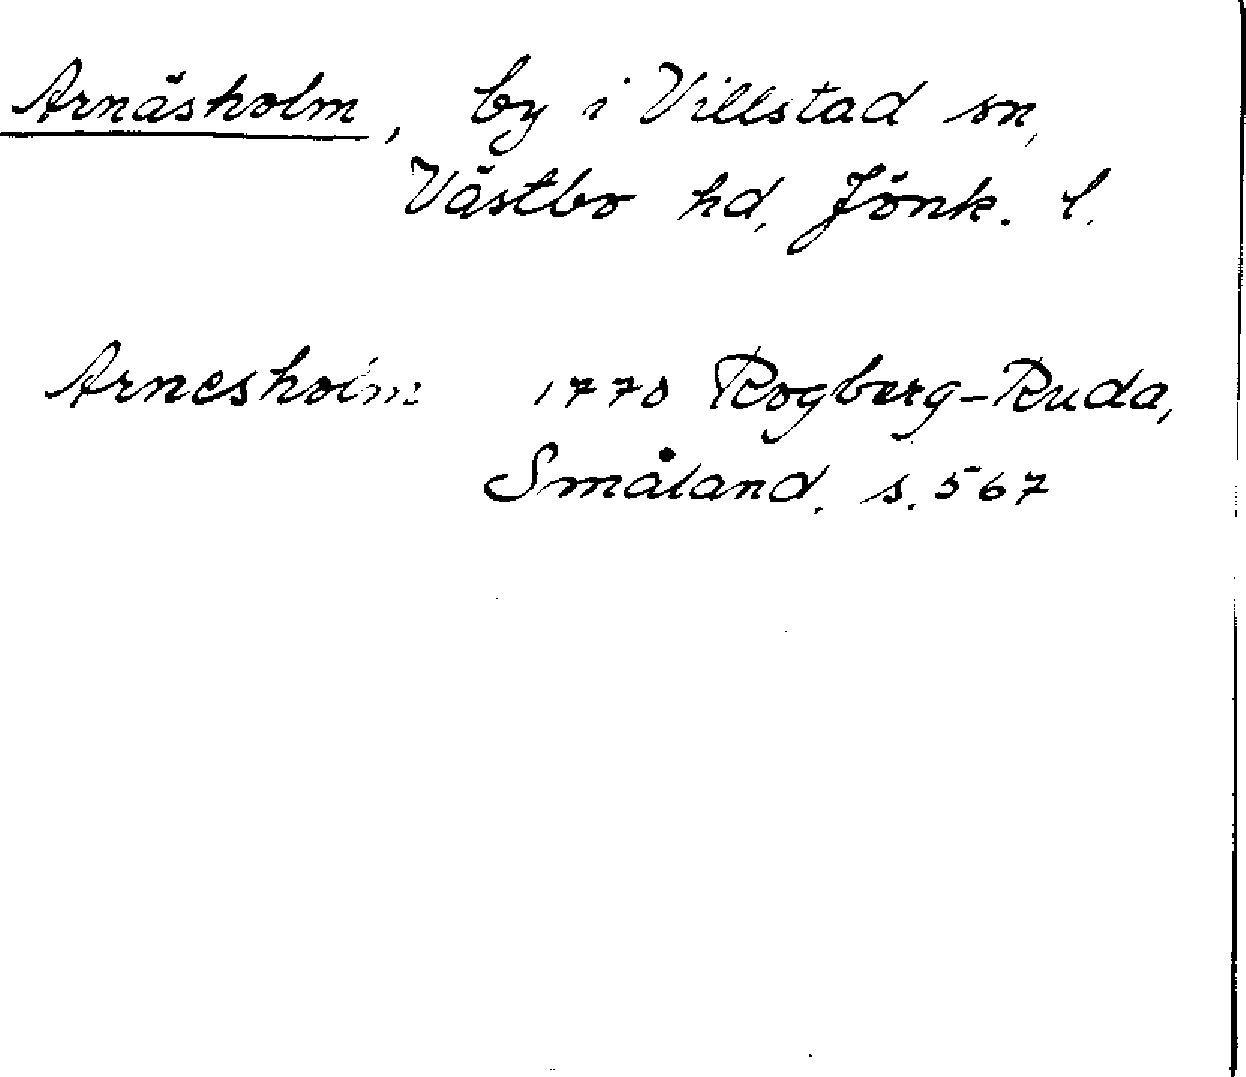 Arnäsholm, by i Villstad sn,
Västbo hd, Jönk. l.
Arnesholm 1770 Rogberg-Ruda,
Småland, s. 567